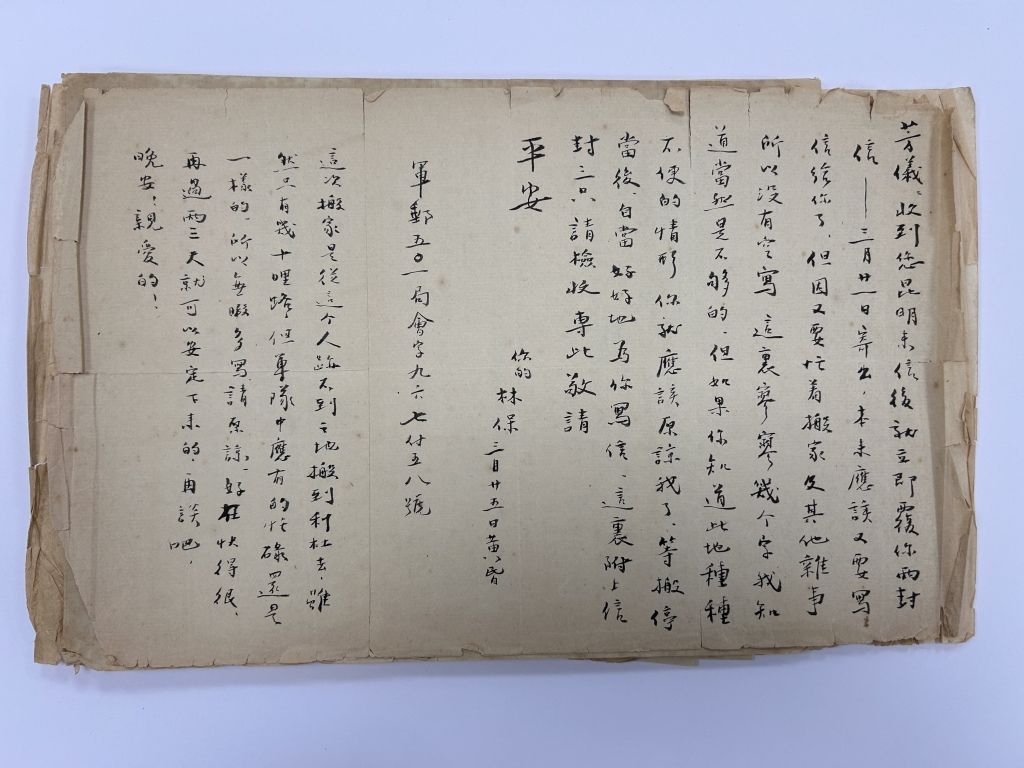 芳儀：收到您昆明來信後就立即覆你兩封
信——三月廿一日寄出，本來應該又要寫
信給你了，但因又要忙着搬家及其他雜事
所以没有空寫，這裏寥寥幾个字我知
道當然是不够的，但如果你知道此地種種
不便的情形，你就應該原諒我了、等搬停
當後，自當好好地為你寫信、這裏附上信
封三只請檢收專此敬請
平安
你的 林保 三月廿五日黃昏
軍郵五〇一局會字九六七付五八號
這次搬家是從這个人跡不到之地搬到利杜去，雖
然只有幾十哩路，但軍隊中應有的忙碌還是
一樣的，所以無暇多寫請原諒，好在快得很、
再過兩三天就可以安定下來的，再談吧，
晚安，親愛的！